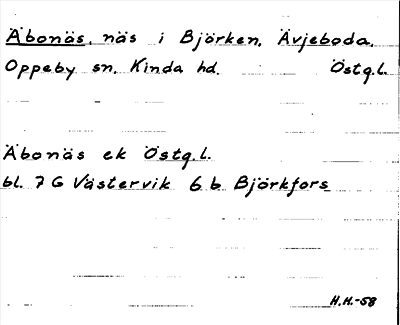 Åbonäs, näs i Björken, Ävjeboda,
Oppeby sn, Kinda hd. Östg.l.
Åbonäs ek Östg.l.
bl. 7 G Västervik 6 b Björkfors
H.H.-58